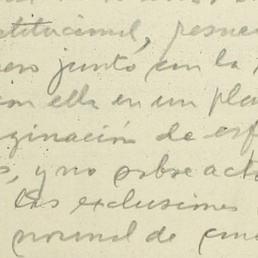 stitucional, resue
ero junto con la
con ella en un pla
aginación de esf
s, y no sobre act
las exclusiones
normal de